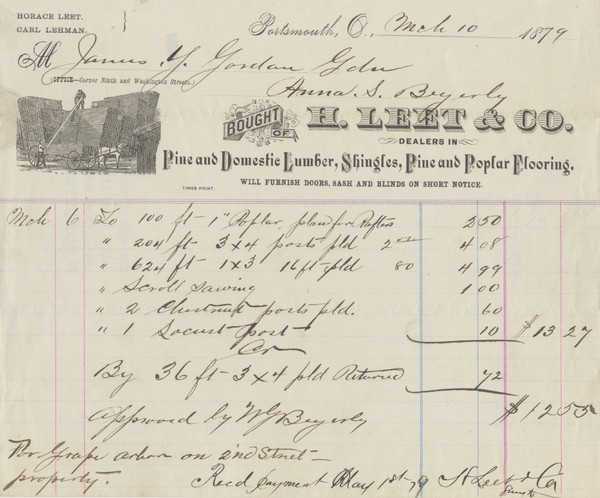 HORACE LEET.
CARL LEHMAN.
Portsmouth, O., Mch 10 1879
M James Y. Gordan Gdn
(OFFICE—Corner Ninth and Washington Streets.)
Anna S. Beyerly
BOUGHT OF H. LEET & CO.
DEALERS IN
Pine and Domestic Lumber, Shingles, Pine and Poplar Flooring.
WILL FURNISH DOORS, SASH AND BLINDS ON SHORT NOTICE.
TIMES PRINT.
Mch 6 To 100 ft 1" Poplar pland for Rafters 2 50
" 204 ft 3x4 posts pld 2 00 4 08
" 624 ft 1x3 16 ft pld 80 4 99
" Scroll Sawing 1 00
" 2 Chestnut posts pld. 60
" 1 Locust post 10 $13 27
Cr
By 36 ft 3x4 pld Returned 72
$12 55
Approved by WG Beyerly
For Grape arbor on 2nd Street
property. Recd payment May 1st 79 H Leet & Co